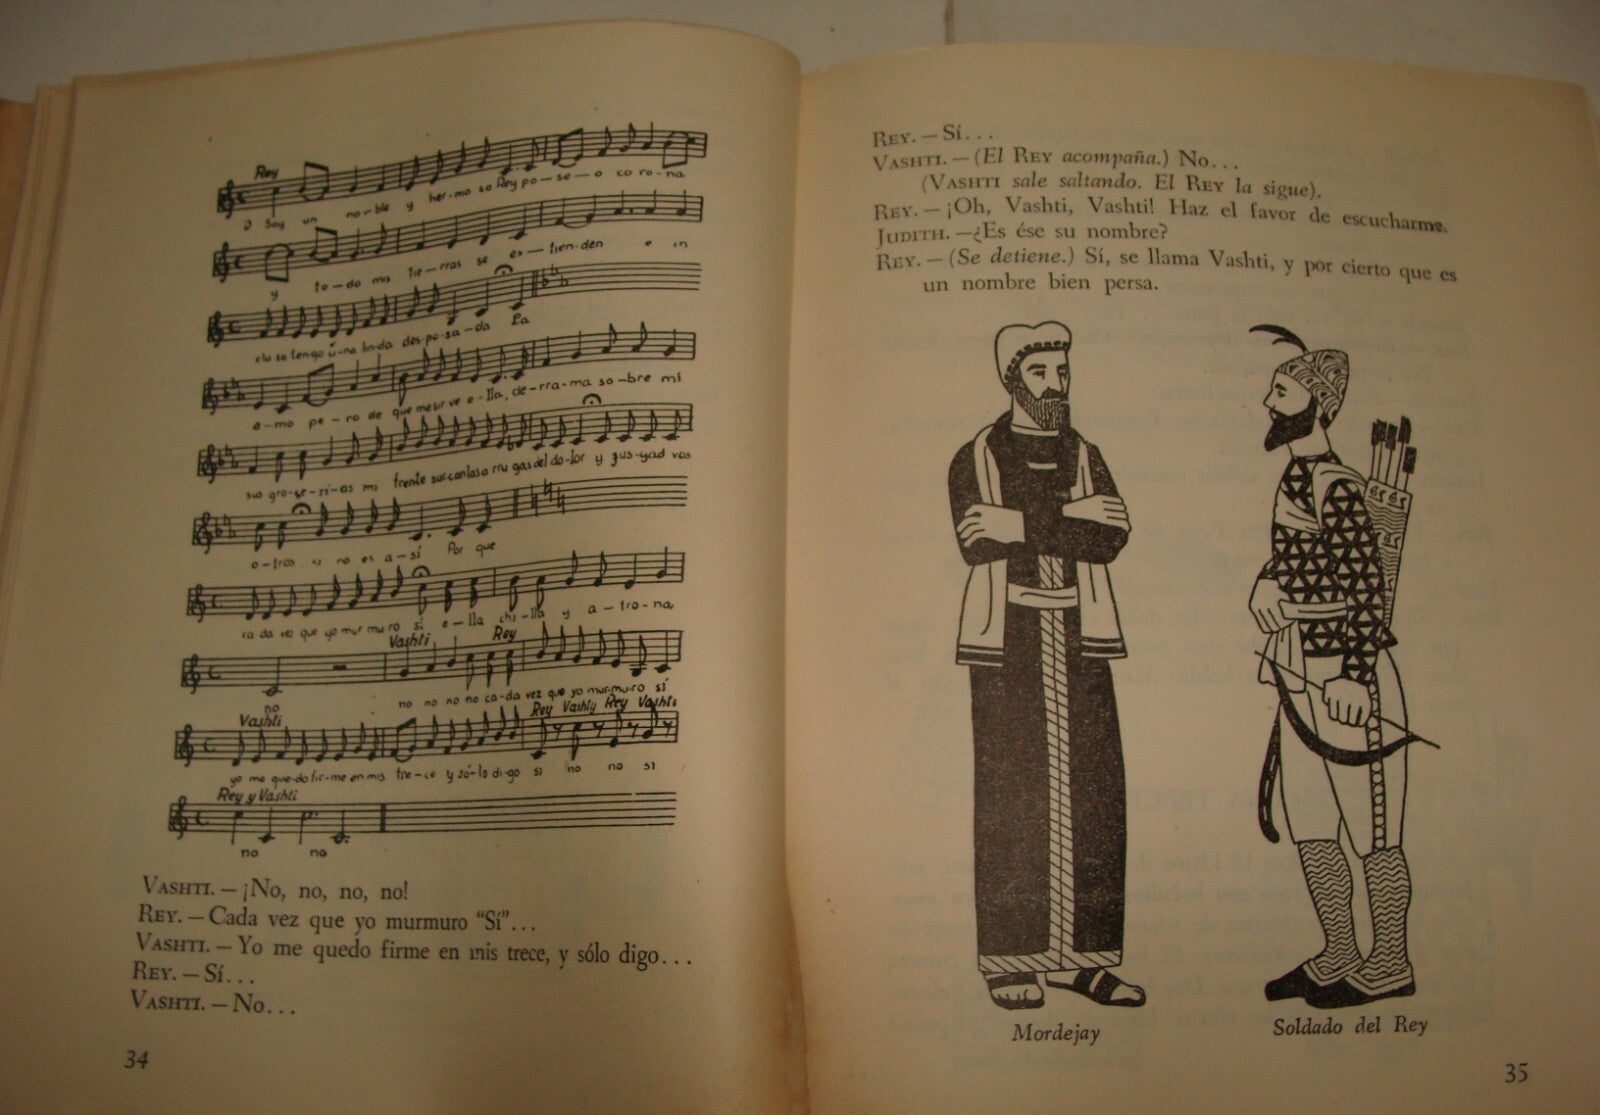 Rey
Soy un no-ble y her-mo so Rey po-se-o co ro-na
y to-do mis tie-rras se ex-tien-den e in
clu so ten-go u-na lin-da des-po-sa-da La
a-mo pe-ro de que me sir ve e-lla, de-rra-ma so-bre mí
sus gro-se-rí-as mi frente surcan las a rru gas del do-lor y
o-tros si no es a-sí Por que
ca da vez que yo mur mu ro sí e-lla chi-lla y a-tro-na
Vashti Rey
no no no no no ca-da vez que yo mur-mu-ro sí
Vashti Rey Vashty Rey Vashti
yo me que-do fir-me en mis tre-ce y só-lo di-go si no no si
Rey y Vashti
no no
VASHTI. — ¡No, no, no, no!
REY. — Cada vez que yo murmuro “Sí”...
VASHTI. — Yo me quedo firme en mis trece, y sólo digo...
REY. — Sí...
VASHTI. — No...
34
REY. — Sí...
VASHTI. — (El REY acompaña.) No...
(VASHTI sale saltando. El REY la sigue).
REY. — ¡Oh, Vashti, Vashti! Haz el favor de escucharme.
JUDITH. — ¿Es ése su nombre?
REY. — (Se detiene.) Sí, se llama Vashti, y por cierto que es
un nombre bien persa.
Mordejay
Soldado del Rey
35